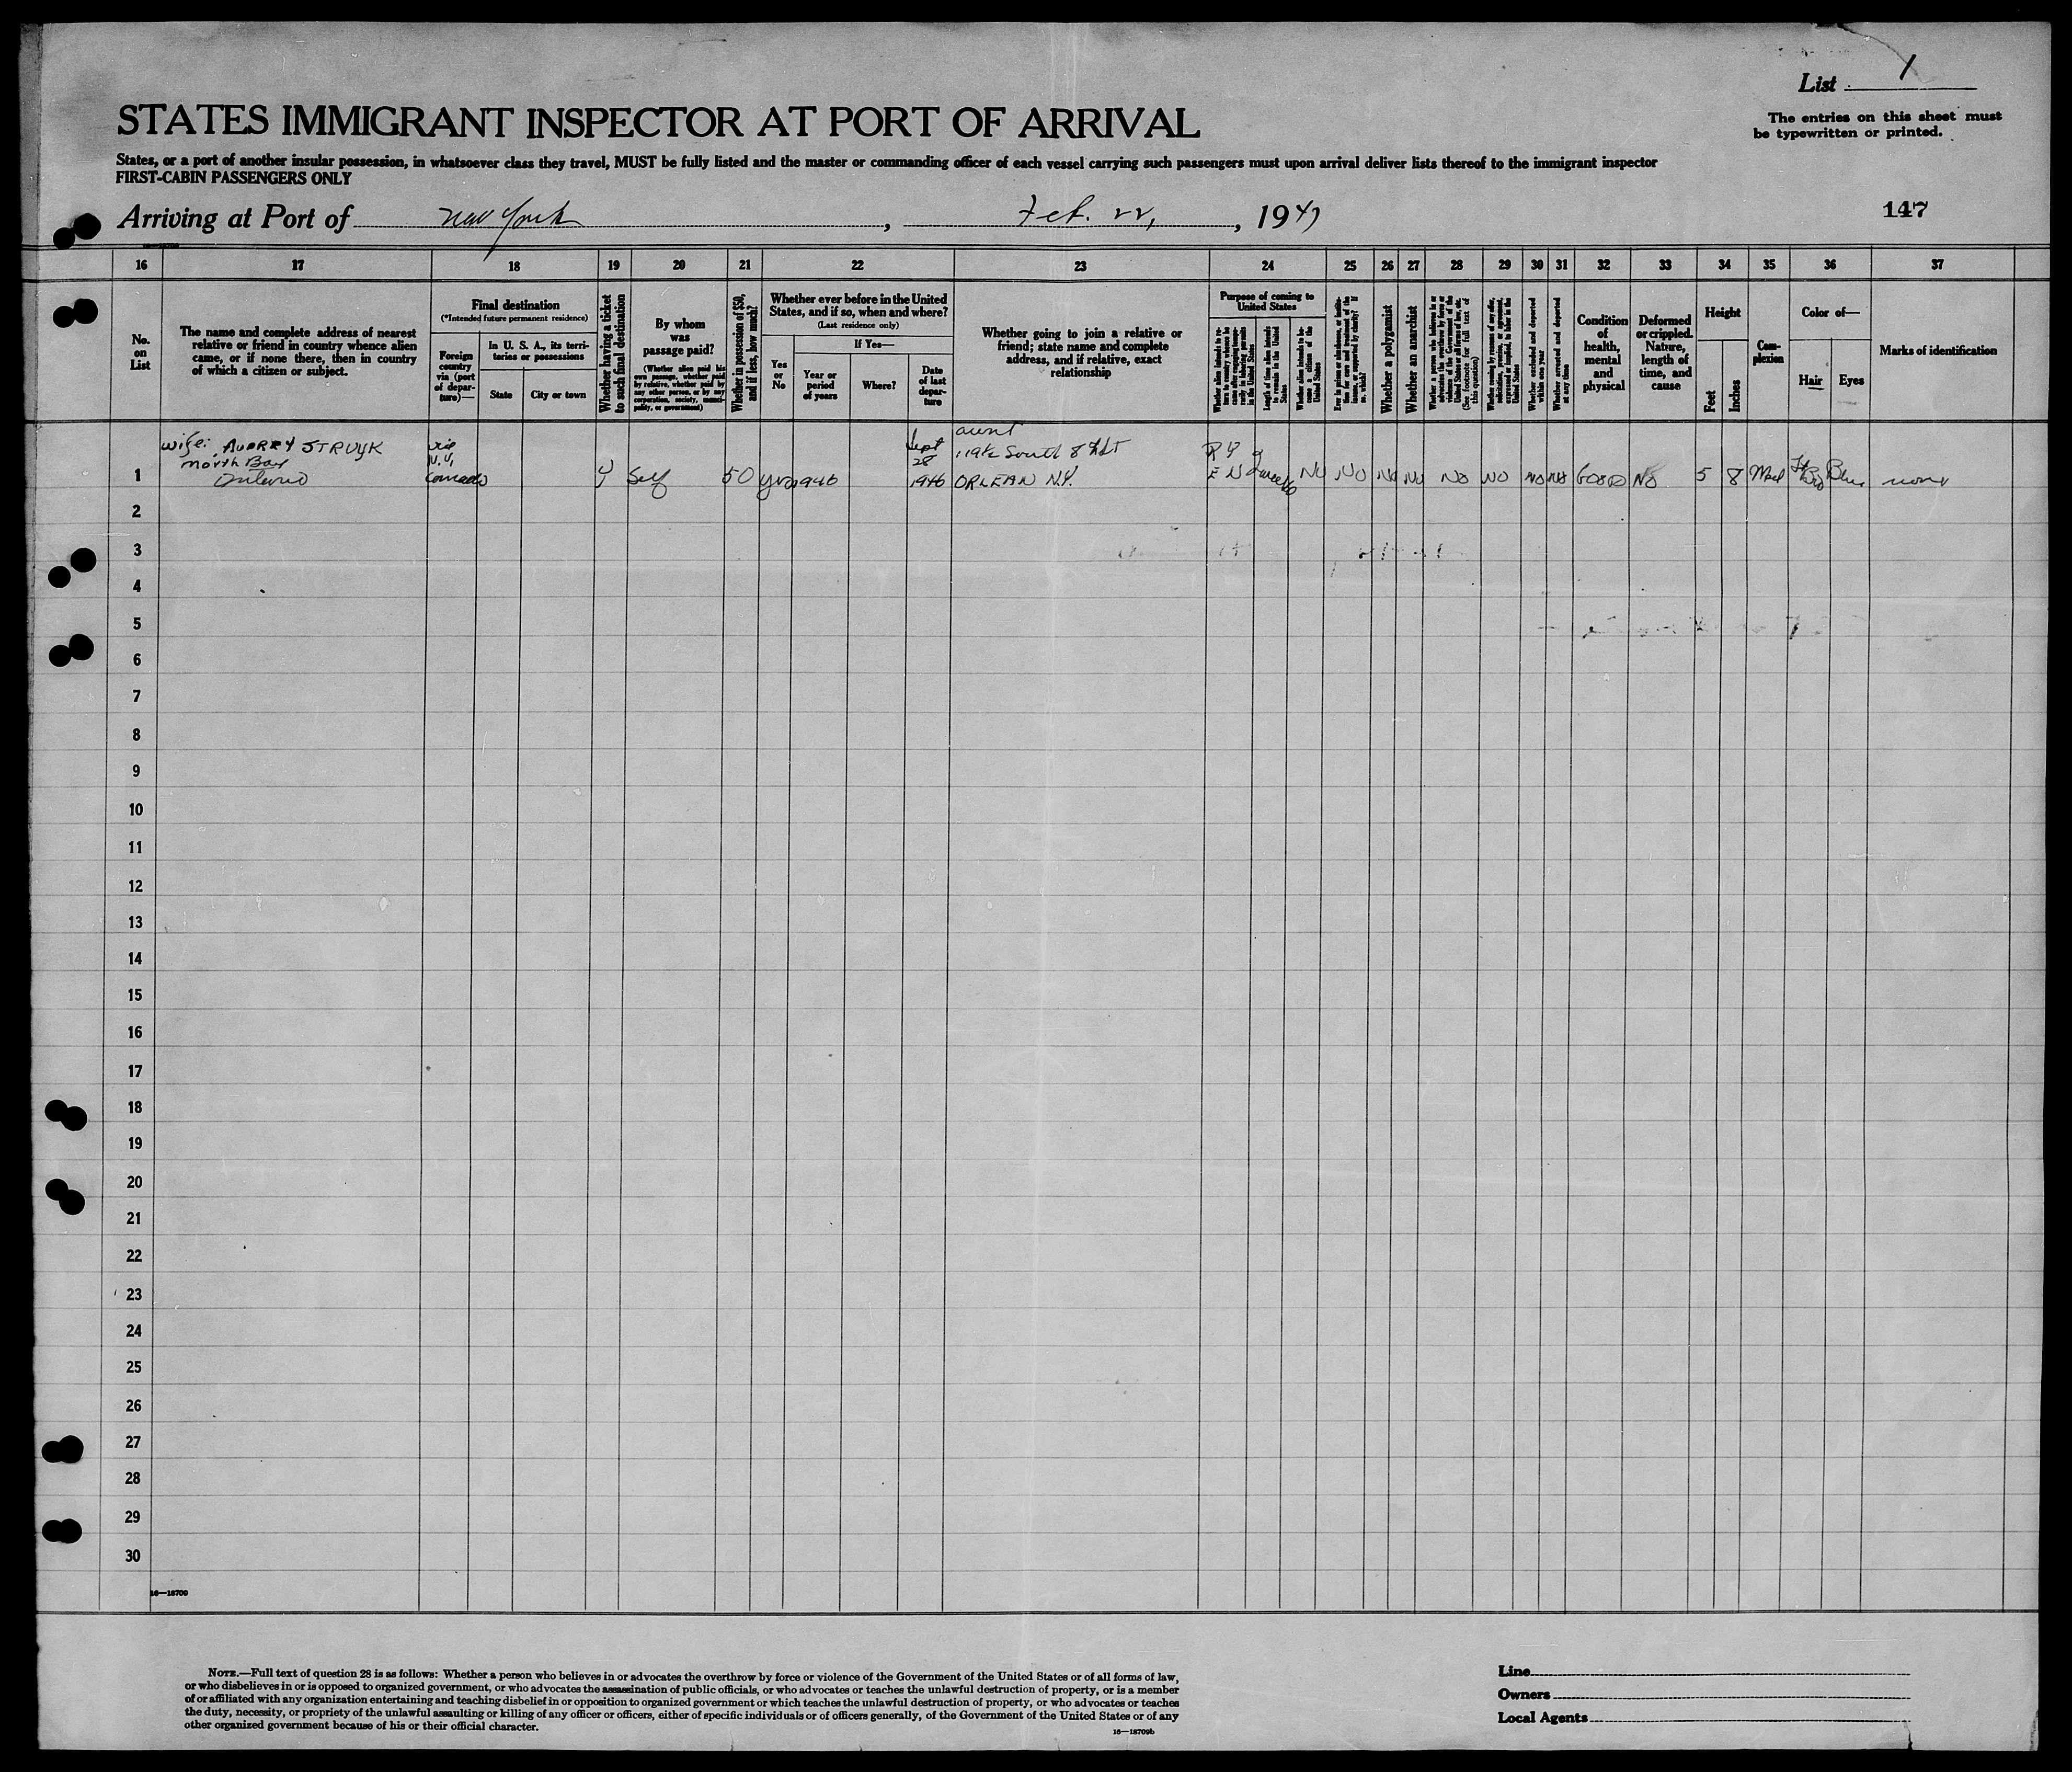 List 1
The entries on this sheet must
be typewritten or printed.
STATES IMMIGRANT INSPECTOR AT PORT OF ARRIVAL
States, or a port of another insular possession, in whatsoever class they travel, MUST be fully listed and the master or commanding officer of each vessel carrying such passengers must upon arrival deliver lists thereof to the immigrant inspector
FIRST-CABIN PASSENGERS ONLY
Arriving at Port of New York, Feb. 22, 1947
147
16 17 18 19 20 21 22 23 24 25 26 27 28 29 30 31 32 33 34 35 36 37
No.
on
List
The name and complete address of nearest
relative or friend in country whence alien
came, or if none there, then in country
of which a citizen or subject.
Final destination
(*Intended future permanent residence)
Foreign
country
via (port
of depar-
ture)—
In U. S. A., its terri-
tories or possessions
State
City or town
Whether having a ticket
to such final destination
By whom
was
passage paid?
(Whether alien paid his
own passage, whether paid
by relative, whether paid by
any other person, or by any
corporation, society, munici-
pality, or government)
Whether in possession of $50,
and if less, how much?
Whether ever before in the United
States, and if so, when and where?
(Last residence only)
Yes
or
No
If Yes—
Year or
period
of years
Where?
Date
of last
depar-
ture
Whether going to join a relative or
friend; state name and complete
address, and if relative, exact
relationship
Purpose of coming to
United States
Whether alien intends to re-
turn to country whence he
came after engaging tempo-
rarily in laboring pursuits
in the United States
Length of time alien intends
to remain in the United
States
Whether alien intends to be-
come a citizen of the
United States
Whether a polygamist
Whether an anarchist
(See footnote for full text of
this question)
Whether excluded and deported
within one year
Whether arrested and deported
at any time
Condition
of
health,
mental
and
physical
Deformed
or crippled.
Nature,
length of
time, and
cause
Height
Feet
Inches
Com-
plexion
Color of—
Hair
Eyes
Marks of identification
wife: AUDREY STRUYK
North Bay
Ontario
via
N.Y.
Canada
Y
Self
50
yes
1946
Sept
28
1946
aunt
119½ South 8th ST
ORLEAN N.Y.
NO NO NO NO NO NO NO NO GOOD NO 5 8 Med Blue none
1
2
3
4
5
6
7
8
9
10
11
12
13
14
15
16
17
18
19
20
21
22
23
24
25
26
27
28
29
30
16—18709
NOTE.—Full text of question 28 is as follows: Whether a person who believes in or advocates the overthrow by force or violence of the Government of the United States or of all forms of law,
or who disbelieves in or is opposed to organized government, or who advocates the assassination of public officials, or who advocates or teaches the unlawful destruction of property, or is a member
of or affiliated with any organization entertaining and teaching disbelief in or opposition to organized government or which teaches the unlawful destruction of property, or who advocates or teaches
the duty, necessity, or propriety of the unlawful assaulting or killing of any officer or officers, either of specific individuals or of officers generally, of the Government of the United States or of any
other organized government because of his or their official character.
16—18709b
Line
Owners
Local Agents